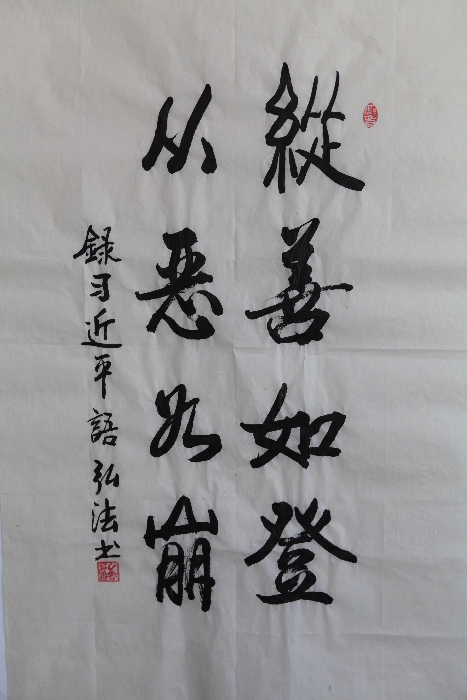 縱善如登
从恶如崩
録习近平語 弘法书